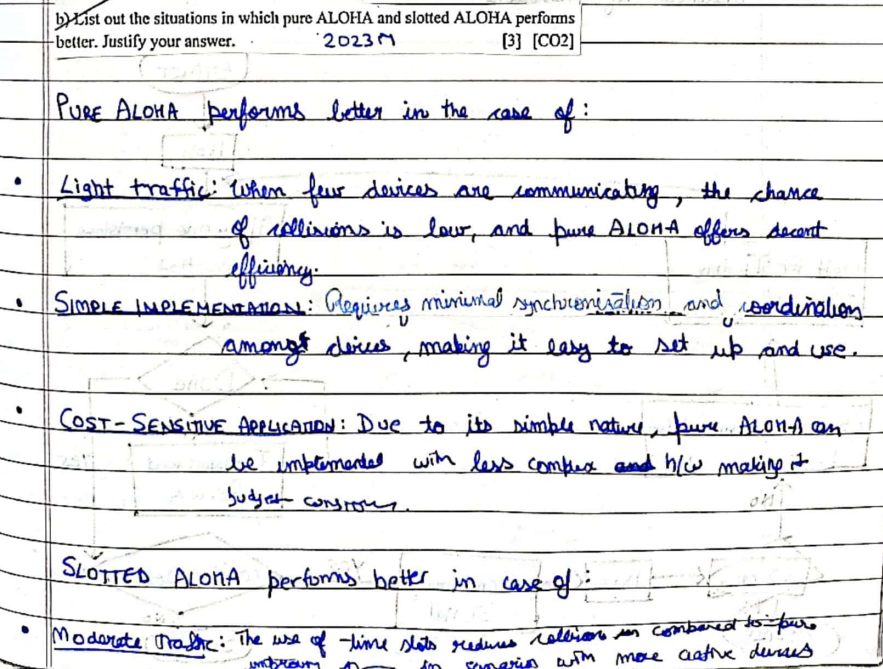 b) List out the situations in which pure ALOHA and slotted ALOHA performs
better. Justify your answer. 2023M [3] [CO2]
PURE ALOHA performs better in the case of :
• Light traffic: When few devices are communicating, the chance
of collisions is low, and pure ALOHA offers decent
efficiency.
• SIMPLE IMPLEMENTATION: Requires minimal synchronisation and coordination
amongst devices, making it easy to set up and use.
• COST-SENSITIVE APPLICATION: Due to its simple nature, pure ALOHA can
be implemented with less complex h/w making it
budget
SLOTTED ALOHA performs better in case of :
• Moderate Traffic: The use of time slots reduces collision compared to pure
in scenarios with more active devices